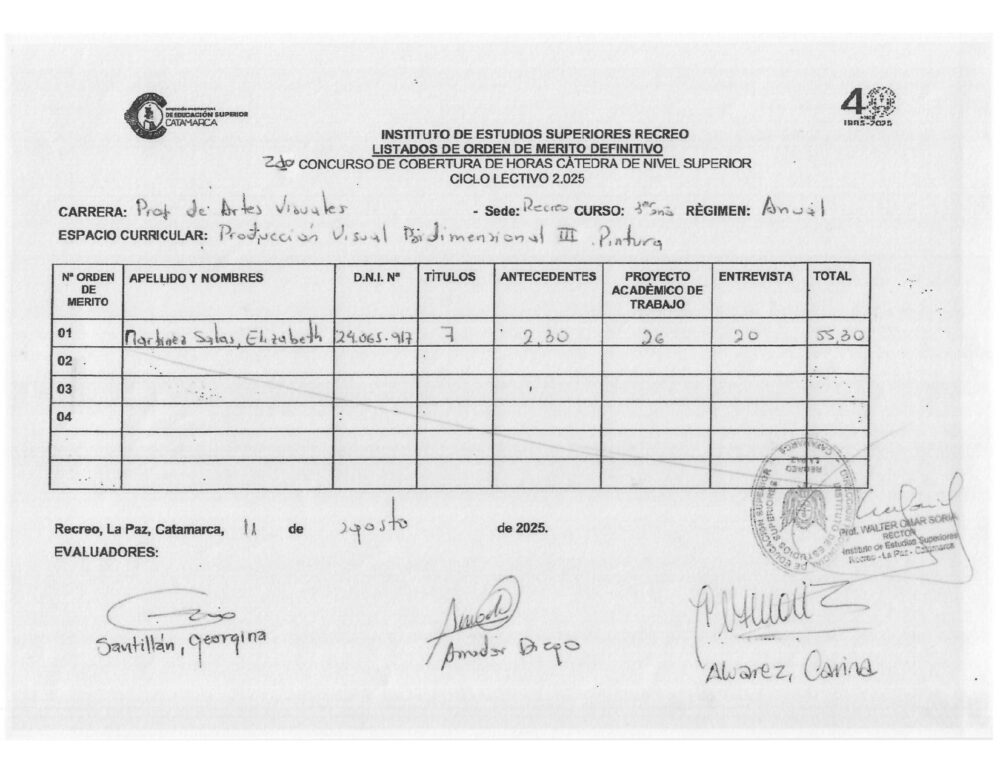 DE EDUCACIÓN SUPERIOR
CATAMARCA
40
AÑOS
1985-2025
INSTITUTO DE ESTUDIOS SUPERIORES RECREO
LISTADOS DE ORDEN DE MERITO DEFINITIVO
2do CONCURSO DE COBERTURA DE HORAS CÀTEDRA DE NIVEL SUPERIOR
CICLO LECTIVO 2.025
CARRERA: Prof de Artes Visuales - Sede: Recreo CURSO: 3er año RÈGIMEN: Anual
ESPACIO CURRICULAR: Producción Visual Bidimensional III Pintura
Nº ORDEN DE MERITO APELUDO Y NOMBRES D.N.I. Nº TÌTULOS ANTECEDENTES PROYECTO ACADÈMICO DE TRABAJO ENTREVISTA TOTAL
01 Martinez Salas, Elizabeth 24.065.917 7 2,30 26 20 55,30
02
03
04
Recreo, La Paz, Catamarca, 11 de agosto de 2025.
EVALUADORES:
Prof. WALTER OMAR SORIA
RECTOR
Instituto de Estudios Superiores
Recreo - La Paz - Catamarca
Santillán, Georgina
Amador Diego
Alvarez, Carina